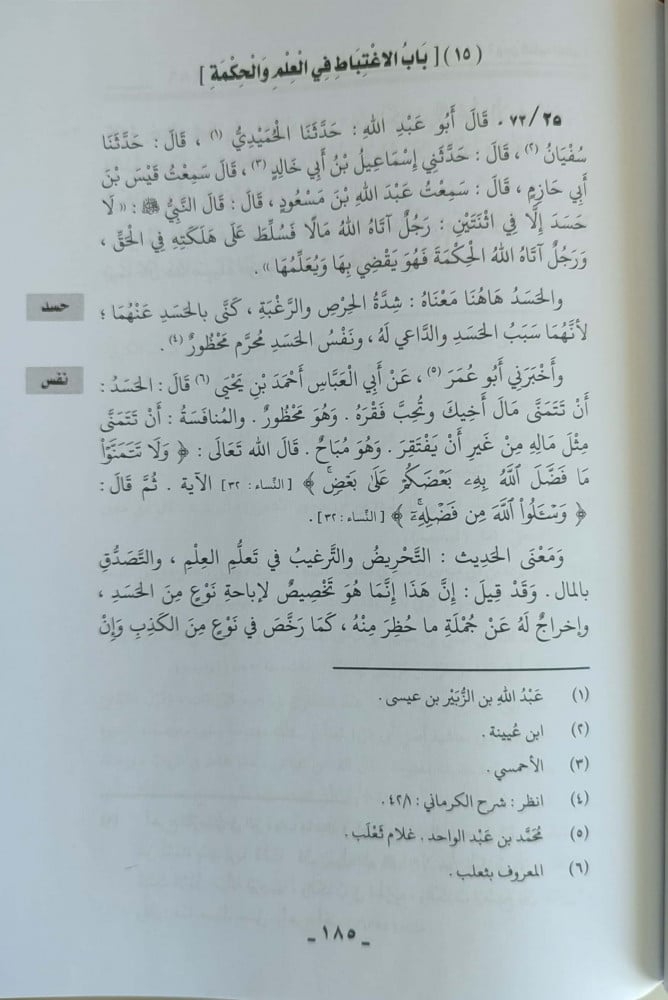 (١٥) [ بَابُ الاغْتِبَاطِ فِي الْعِلْمِ وَالْحِكْمَةِ ]
٧٣/٢٥ . قَالَ أَبُو عَبْدِ اللهِ : حَدَّثَنَا الْحُمَيْدِيُّ (١) ، قَالَ : حَدَّثَنَا
سُفْيَانُ (٢) ، قَالَ : حَدَّثَنِي إِسْمَاعِيلُ بْنُ أَبِي خَالِدٍ (٣) ، قَالَ سَمِعْتُ قَيْسَ بْنَ
أَبِي حَازِمٍ ، قَالَ : سَمِعْتُ عَبْدَ اللهِ بْنَ مَسْعُودٍ ، قَالَ : قَالَ النَّبِيُّ ﷺ : « لَا
حَسَدَ إِلَّا فِي اثْنَتَيْنِ : رَجُلٌ آتَاهُ اللهُ مَالًا فَسُلِّطَ عَلَى هَلَكَتِهِ فِي الْحَقِّ ،
وَرَجُلٌ آتَاهُ اللهُ الْحِكْمَةَ فَهُوَ يَقْضِي بِهَا وَيُعَلِّمُهَا » .
حسد
والحَسَدُ هَاهُنَا مَعْنَاهُ : شِدَّةُ الحِرْصِ والرَّغْبَةِ ، كَنَّى بالحَسَدِ عَنْهُمَا ؛
لأنَّهُمَا سَبَبُ الحَسَدِ والدَّاعي لَهُ ، ونَفْسُ الحَسَدِ مُحرَّم مَحْظُورٌ (٤) .
نفس
وأَخْبَرَنِي أَبُو عُمَرَ (٥) ، عَنْ أَبِي العَبَّاسِ أَحْمَدَ بْنِ يَحْيَى (٦) قَالَ : الحَسَدُ :
أَنْ تَتَمَنَّى مَالَ أَخِيكَ وتُحِبَّ فَقْرَهُ . وَهُوَ مَحْظُورٌ . والمُنافَسَةُ : أَنْ تَتَمَنَّى
مِثْلَ مَالِهِ مِنْ غَيرِ أَنْ يَفْتَقِرَ . وَهُوَ مُبَاحٌ . قَالَ الله تَعَالَى : ﴿ وَلَا تَتَمَنَّوْاْ
مَا فَضَّلَ ٱللَّهُ بِهِۦ بَعْضَكُمْ عَلَىٰ بَعْضٍۚ ﴾ [النِّساء: ٣٢] الآية . ثُمَّ قَالَ :
﴿ وَسْـَٔلُواْ ٱللَّهَ مِن فَضْلِهِۦٓۚ ﴾ [النِّساء: ٣٢] .
وَمَعْنَى الحَدِيث : التَّحْريضُ والتَّرغيبُ فِي تَعلُّمِ العِلْمِ ، والتَّصَدُّقِ
بالمال . وَقَدْ قِيلَ : إِنَّ هَذَا إِنَّمَا هُوَ تَخْصِيصٌ لإباحةِ نَوْعٍ مِنَ الحَسَدِ ،
وإخراجٌ لَهُ عَنْ جُمْلَةِ ما حُظِرَ مِنْهُ ، كَمَا رَخَّصَ فِي نَوْعٍ مِنَ الكَذِبِ وَإِنْ
(١) عَبْدُ اللهِ بن الزُّبَيْر بن عيسى .
(٢) ابن عُيينة .
(٣) الأحمسي .
(٤) انظر : شرح الكرماني : ٤٢/٢ .
(٥) مُحَمَّد بن عَبْد الواحد . غلام ثَعْلَب .
(٦) المعروف بثعلب .
- ١٨٥ -